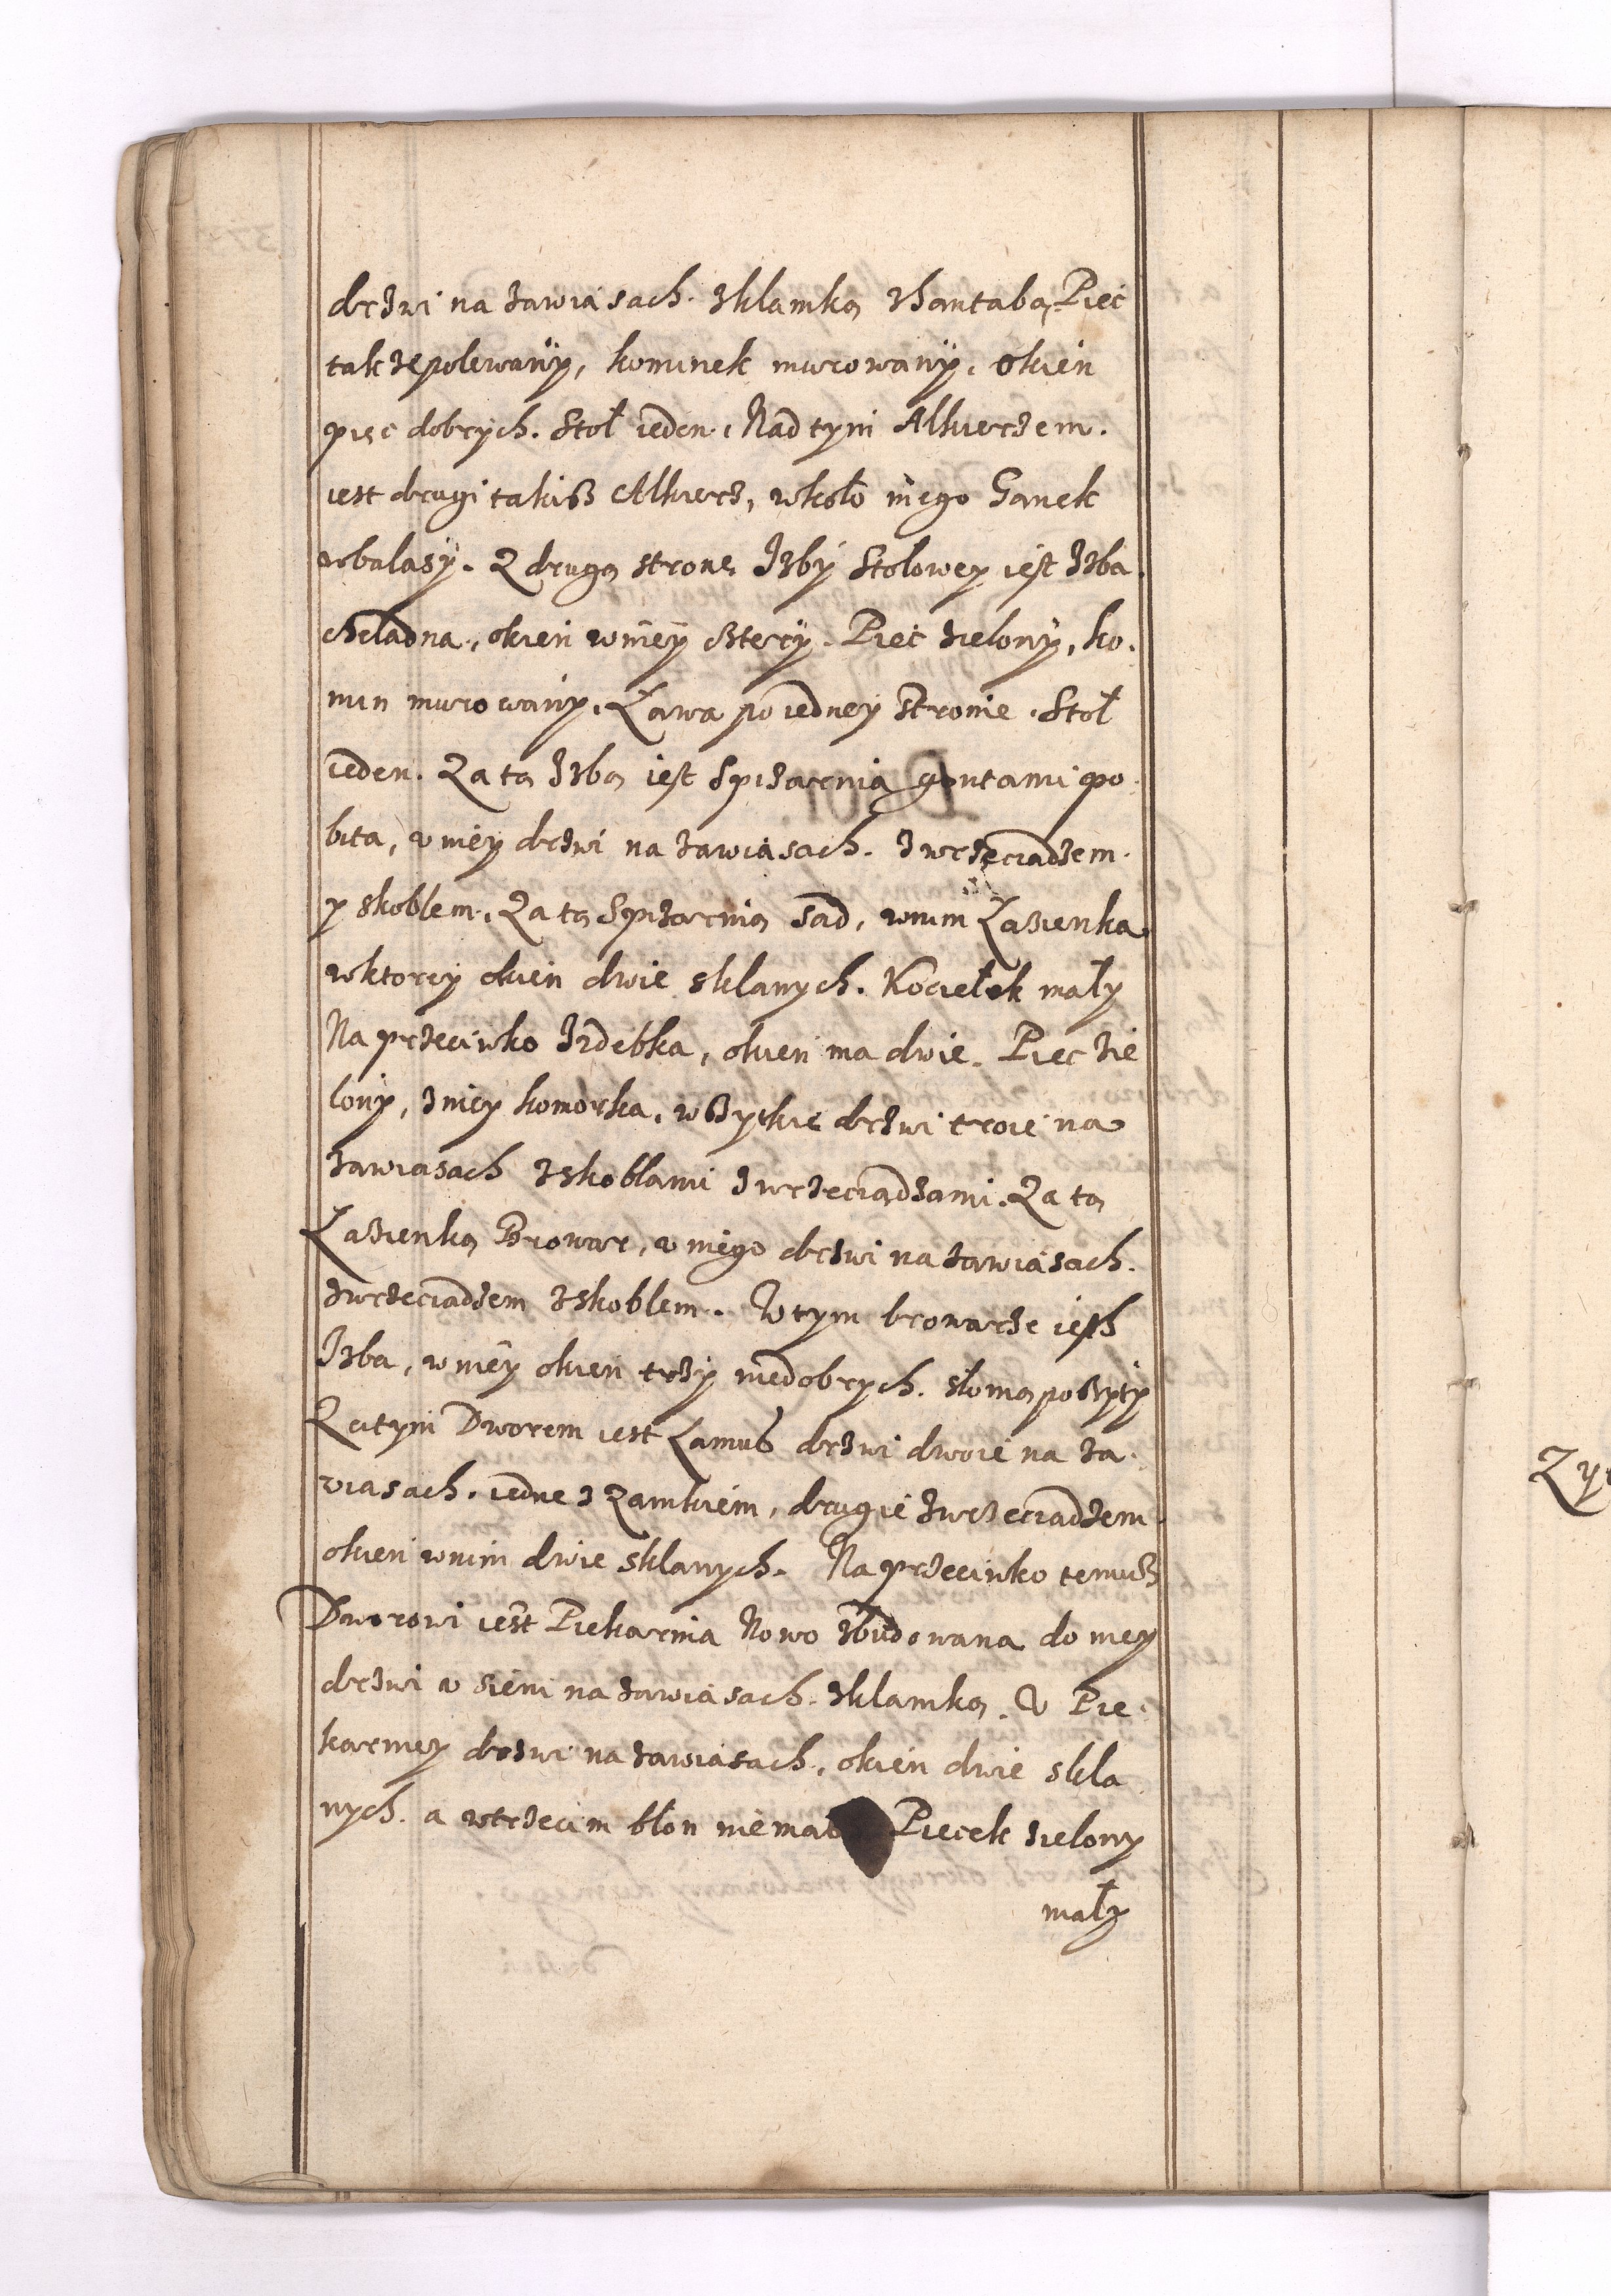 drzwi na zawiasach. zklamką zhantabą, Piec
takze polewany, kominek murowany, okien
pięc dobrych. Stoł ieden, Nad tym Alkierzem.
iest drugi takiß Alkierz, wkoło niego Ganek
wbalasy. Z drugą stronę Izby Stołowey iest Izba
czeladna, okien wniey cztery. Piec zielony, ko-
min murowany, Ława po iedney stronie. Stoł
ieden. Za tą Izbą iest Spizarnia gontami po
bita, w niey drzwi na zawiasach. z wrzeciadzem.
y skoblem. Za tą Spizarnią sad, wnim Łazienka
wktorey okien dwie sklanych. Kociełek mały
Na przeciwko Izdebka, okien ma dwie. Piec zie
lony, z niey komorka. wßytkie drzwi troie na
zawiasach zskoblami z wrzeciądzami. Za tą
Łazienką Browar, w niego drzwi na zawiasach.
zwrzeciadzem zskoblem. W tym browarze iest
Izba, w niey okien trzy niedobrych. słomą poßyty
Za tym Dworem iest Lamuß drzwi dwoie na za-
wiasach. iedne z Zamkiem, drugie zwrzeciadzem
okien wnim dwie sklanych. Na przeciwko temusz
Dworowi iest Piekarnia Nowo zbudowana do niey
drzwi w sieni na zawiasach. zklamką. W Pie-
karniey drzwi na zawiasach, okien dwie skla
nych. a wtrzecim błon niemasz Piecek zielony
mały
Zy